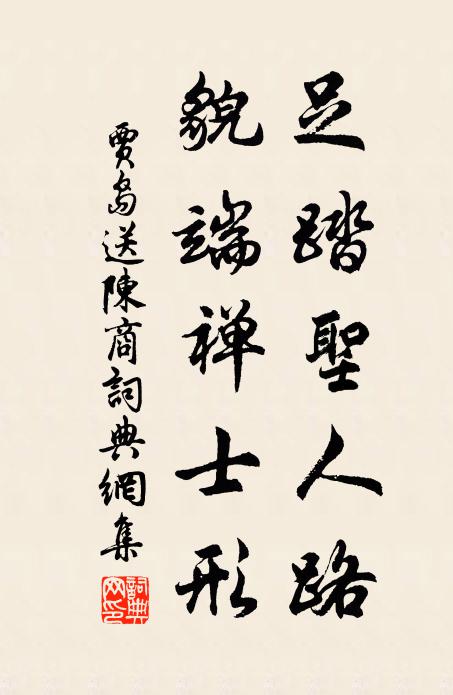 足踏聖人路
貌端禅士形
賈島送陳商詞典網集
詞典網印